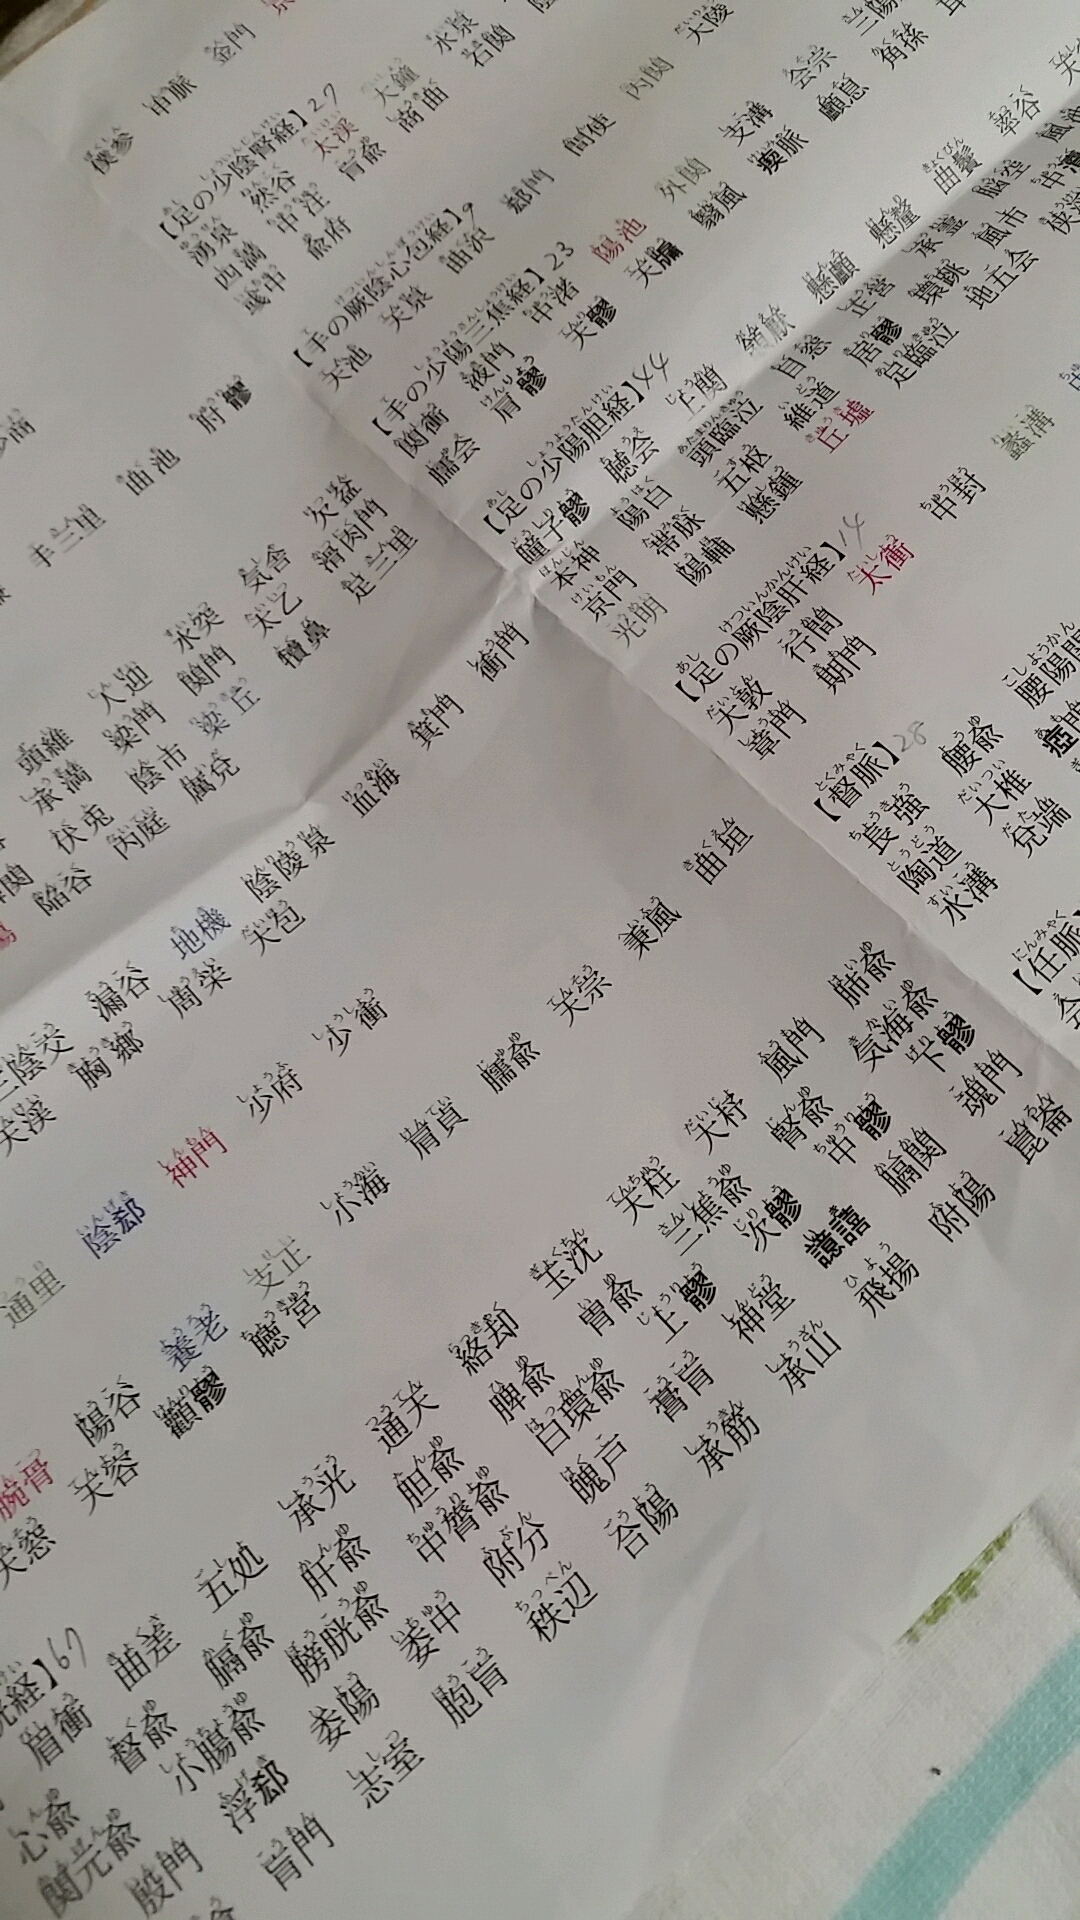 僕参 申脈 金門
【足の少陰腎経】27
湧泉 然谷 太渓 大鐘 水泉
四満 中注 肓兪 商曲 石関
彧中 兪府
【手の厥陰心包経】9
天池 天泉 曲沢 郄門 間使 内関 大陵
【手の少陽三焦経】23
関衝 液門 中渚 陽池 外関 支溝 会宗
臑会 肩髎 天髎 天牖 翳風 瘈脈 顱息 角孫
【足の少陽胆経】44
瞳子髎 聴会 上関 頷厭 懸顱 懸釐 曲鬢 率谷
本神 陽白 頭臨泣 目窓 正営 承霊 脳空 風池
京門 帯脈 五枢 維道 居髎 環跳 風市 中瀆
光明 陽輔 懸鍾 丘墟 足臨泣 地五会
【足の厥陰肝経】14
大敦 行間 太衝 中封 蠡溝
章門 期門
【督脈】28
長強 腰兪 腰陽関
陶道 大椎 瘂門
水溝 兌端
【任脈】
手三里 曲池 肘髎
頭維 人迎 水突 気舎 欠盆
承満 梁門 関門 太乙 滑肉門
伏兎 陰市 梁丘 犢鼻 足三里
陥谷 内庭 厲兌
三陰交 漏谷 地機 陰陵泉 血海 箕門 衝門
天渓 胸郷 周栄 大包
通里 陰郄 神門 少府 少衝
腕骨 陽谷 養老 支正 小海 肩貞 臑兪 天宗 秉風 曲垣
天窓 天容 顴髎 聴宮
眉衝 曲差 五処 承光 通天 絡却 玉沈 天柱 大杼 風門 肺兪
心兪 督兪 膈兪 肝兪 胆兪 脾兪 胃兪 三焦兪 腎兪 気海兪
関元兪 小腸兪 膀胱兪 中膂兪 白環兪 上髎 次髎 中髎 下髎
殷門 浮郄 委陽 委中 附分 魄戸 膏肓 神堂 譩譆 膈関 魂門
肓門 志室 胞肓 秩辺 合陽 承筋 承山 飛揚 附陽 崑崙